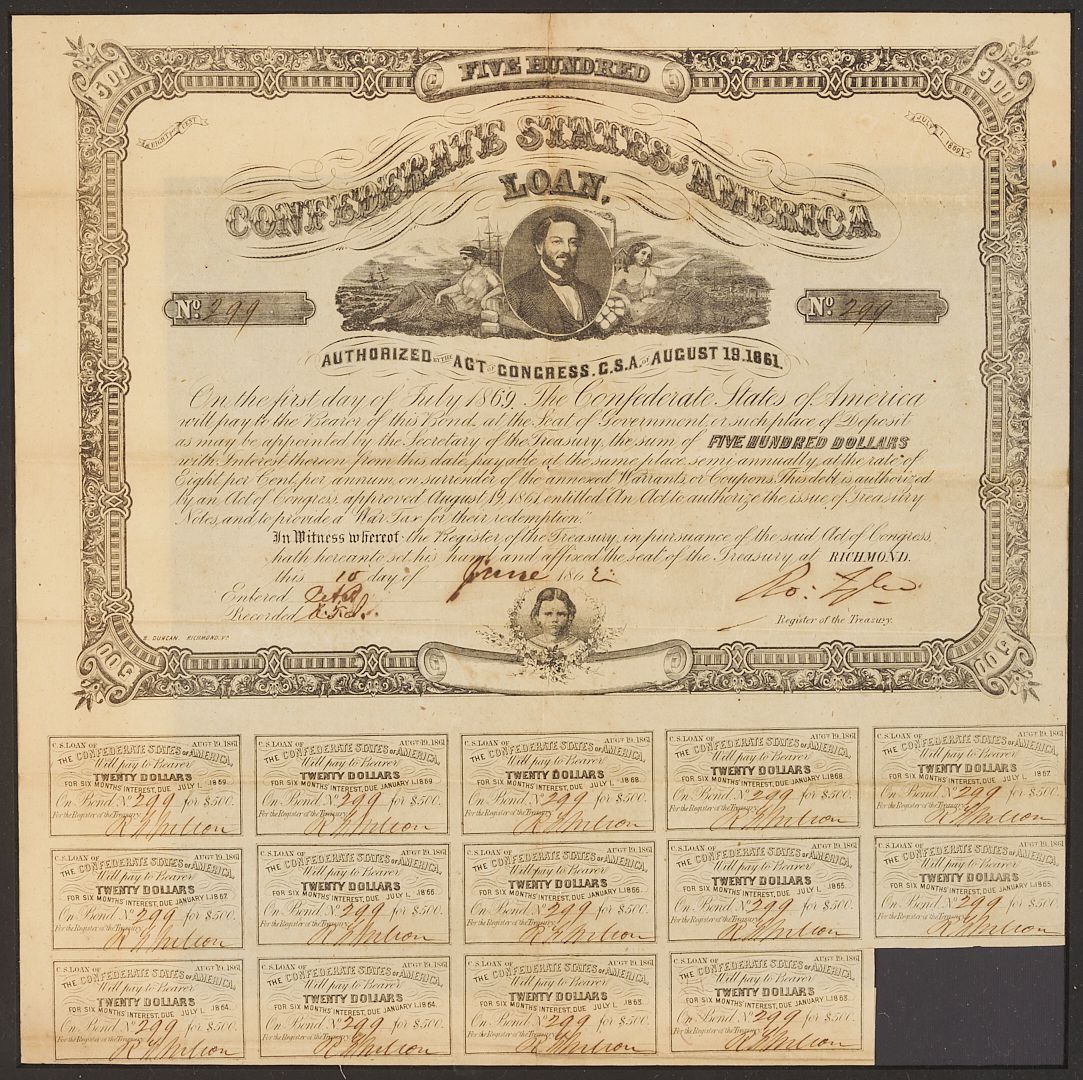 500
FIVE HUNDRED
500
JULY 1, 1869
CONFEDERATE STATES OF AMERICA
LOAN,
No. 299
No. 299
AUTHORIZED BY THE ACT OF CONGRESS, C.S.A. OF AUGUST 19. 1861.
On the first day of July 1869. The Confederate States of America
will pay to the Bearer of this Bond, at the Seat of Government, or such place of Deposit
as may be appointed by the Secretary of the Treasury, the sum of FIVE HUNDRED DOLLARS
with Interest thereon from this date, payable at the same place semi-annually, at the rate of
Eight per Cent, per annum, on surrender of the annexed Warrants, or Coupons. This debt is authorized
by an Act of Congress approved August 19, 1861, entitled "An Act to authorize the issue of Treasury
Notes, and to provide a War Tax for their redemption."
In Witness whereof the Register of the Treasury, in pursuance of the said Act of Congress,
hath hereunto set his hand and affixed the seal of the Treasury, at RICHMOND.
this 10 day of June 1862
Entered
Recorded
Ro: Tyler
Register of the Treasury.
DUNCAN. RICHMOND, VA
500
500
C.S. LOAN OF AUGT 19, 1861
THE CONFEDERATE STATES OF AMERICA,
Will pay to Bearer
TWENTY DOLLARS
FOR SIX MONTHS' INTEREST, DUE JULY 1. 1869.
On Bond No 299 for $500.
For the Register of the Treasury.
C.S. LOAN OF AUGT 19, 1861
THE CONFEDERATE STATES OF AMERICA,
Will pay to Bearer
TWENTY DOLLARS
FOR SIX MONTHS' INTEREST, DUE JANUARY 1. 1869.
On Bond No 299 for $500.
For the Register of the Treasury.
C.S. LOAN OF AUGT 19, 1861
THE CONFEDERATE STATES OF AMERICA,
Will pay to Bearer
TWENTY DOLLARS
FOR SIX MONTHS' INTEREST, DUE JULY 1. 1868.
On Bond No 299 for $500.
For the Register of the Treasury.
C.S. LOAN OF AUGT 19, 1861
THE CONFEDERATE STATES OF AMERICA,
Will pay to Bearer
TWENTY DOLLARS
FOR SIX MONTHS' INTEREST, DUE JANUARY 1. 1868.
On Bond No 299 for $500.
For the Register of the Treasury.
C.S. LOAN OF AUGT 19, 1861
THE CONFEDERATE STATES OF AMERICA,
Will pay to Bearer
TWENTY DOLLARS
FOR SIX MONTHS' INTEREST, DUE JULY 1. 1867.
On Bond No 299 for $500.
For the Register of the Treasury.
C.S. LOAN OF AUGT 19, 1861
THE CONFEDERATE STATES OF AMERICA,
Will pay to Bearer
TWENTY DOLLARS
FOR SIX MONTHS' INTEREST, DUE JANUARY 1. 1867.
On Bond No 299 for $500.
For the Register of the Treasury.
C.S. LOAN OF AUGT 19, 1861
THE CONFEDERATE STATES OF AMERICA,
Will pay to Bearer
TWENTY DOLLARS
FOR SIX MONTHS' INTEREST, DUE JULY 1. 1866.
On Bond No 299 for $500.
For the Register of the Treasury.
C.S. LOAN OF AUGT 19, 1861
THE CONFEDERATE STATES OF AMERICA,
Will pay to Bearer
TWENTY DOLLARS
FOR SIX MONTHS' INTEREST, DUE JANUARY 1. 1866.
On Bond No 299 for $500.
For the Register of the Treasury.
C.S. LOAN OF AUGT 19, 1861
THE CONFEDERATE STATES OF AMERICA,
Will pay to Bearer
TWENTY DOLLARS
FOR SIX MONTHS' INTEREST, DUE JULY 1. 1865.
On Bond No 299 for $500.
For the Register of the Treasury.
C.S. LOAN OF AUGT 19, 1861
THE CONFEDERATE STATES OF AMERICA,
Will pay to Bearer
TWENTY DOLLARS
FOR SIX MONTHS' INTEREST, DUE JANUARY 1. 1865.
On Bond No 299 for $500.
For the Register of the Treasury.
C.S. LOAN OF AUGT 19, 1861
THE CONFEDERATE STATES OF AMERICA,
Will pay to Bearer
TWENTY DOLLARS
FOR SIX MONTHS' INTEREST, DUE JULY 1. 1864.
On Bond No 299 for $500.
For the Register of the Treasury.
C.S. LOAN OF AUGT 19, 1861
THE CONFEDERATE STATES OF AMERICA,
Will pay to Bearer
TWENTY DOLLARS
FOR SIX MONTHS' INTEREST, DUE JANUARY 1. 1864.
On Bond No 299 for $500.
For the Register of the Treasury.
C.S. LOAN OF AUGT 19, 1861
THE CONFEDERATE STATES OF AMERICA,
Will pay to Bearer
TWENTY DOLLARS
FOR SIX MONTHS' INTEREST, DUE JULY 1. 1863.
On Bond No 299 for $500.
For the Register of the Treasury.
C.S. LOAN OF AUGT 19, 1861
THE CONFEDERATE STATES OF AMERICA,
Will pay to Bearer
TWENTY DOLLARS
FOR SIX MONTHS' INTEREST, DUE JANUARY 1. 1863.
On Bond No 299 for $500.
For the Register of the Treasury.